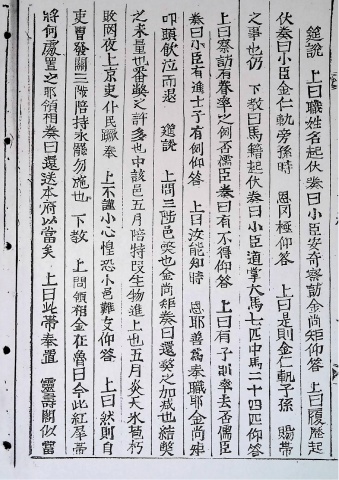 筵說 上曰職姓名起伏奏曰小臣安奇察訪金尙矩仰答 上曰履歷起
伏奏曰小臣金仁軌旁孫時 恩罔極仰答 上曰是則金仁軌子孫 賜帶
之事也仍 下敎曰馬籍起伏奏曰小臣道掌大馬七匹中馬二十四匹仰答
上曰察訪有眷率之例否儒臣奏曰有不得仰答 上曰有子則率去否儒臣
奏曰小臣有進士子有例仰答 上曰汝能知時 恩耶善爲奉職耶金尙矩
叩頭飮泣而退 筵說 上問三階邑弊也金尙矩奏曰還弊之加減也結弊
之末量也番弊之許多也中該邑五月陪特段生物進上也五月炎天氷苞朽
敗罔夜上京吏仆民蹶奉 上不謹小心惶恐小邑難支仰答 上曰然則自
吏曹發關三階陪持永罷勿施也 下敎 上問領相金在魯曰今此紅犀帶
將何處置之耶領相奏曰還送本府似當矣 上曰此帶奉置 靈壽閣似當